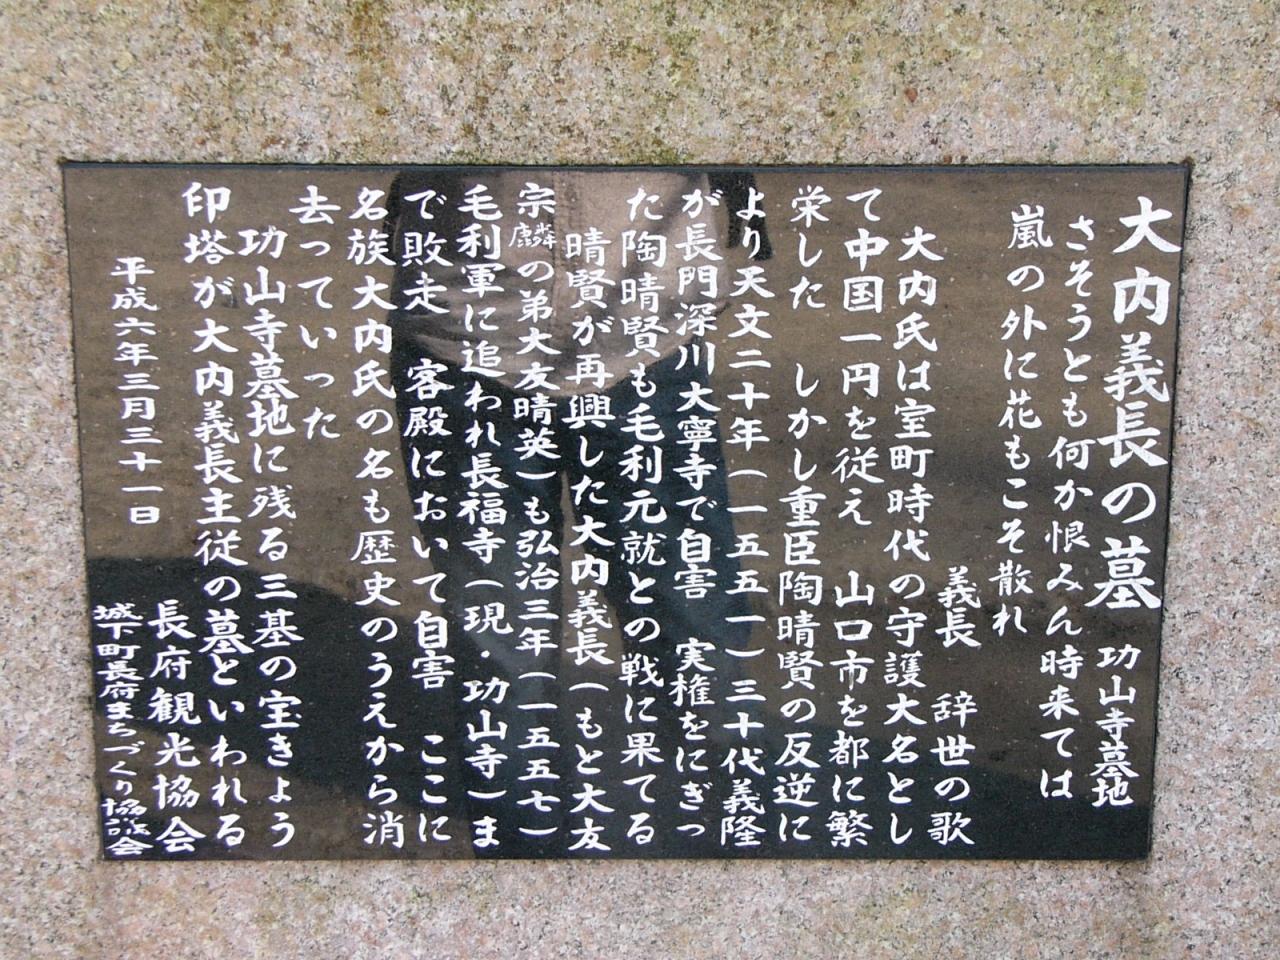 大内義長の墓 功山寺墓地
さそうとも何か恨みん時来ては
嵐の外に花もこそ散れ
義長 辞世の歌
大内氏は室町時代の守護大名とし
て中国一円を従え 山口市を都に繁
栄した しかし重臣陶晴賢の反逆に
より天文二十年(一五五一)三十代義隆
が長門深川大寧寺で自害 実権をにぎっ
た陶晴賢も毛利元就との戦に果てる
晴賢が再興した大内義長(もと大友
宗麟の弟大友晴英)も弘治三年(一五五七)
毛利軍に追われ長福寺(現・功山寺)ま
で敗走 客殿において自害 ここに
名族大内氏の名も歴史のうえから消
去っていった
功山寺墓地に残る三基の宝きょう
印塔が大内義長主従の墓といわれる
平成六年三月三十一日
長府観光協会
城下町長府まちづくり協議会